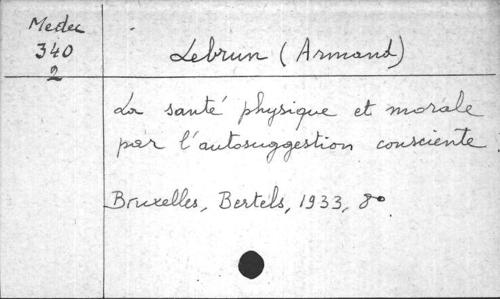 Medec
340
2
Lebrun (Armand)
La santé physique et morale
par l'autosuggestion consciente
Bruxelles, Bertels, 1933, 8°